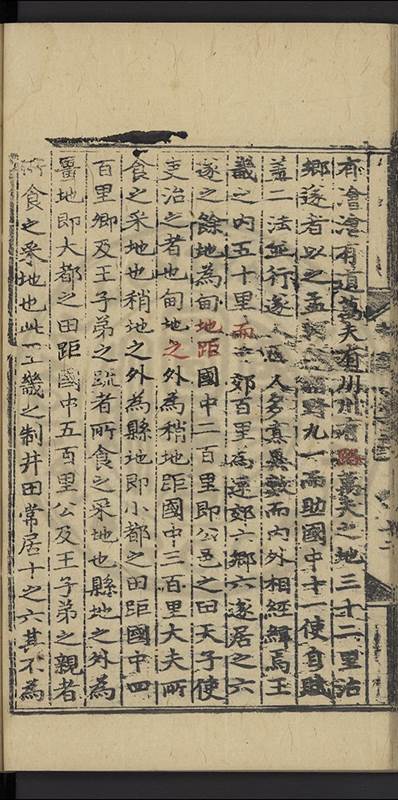 有澮澮有道萬夫有川川有路萬夫之地三十二里治
鄉遂者以之孟野九一而助國中十一使自賦
蓋二法並行遂人匠人多寡異數而內外相經緯焉王
畿之內五十里而近郊百里為遠郊六鄉六遂居之六
遂之餘地為甸地距國中二百里即公邑之田天子使
吏治之者也甸地之外為稍地距國中三百里大夫所
食之采地也稍地之外為縣地即小都之田距國中四
百里鄉及王子弟之疏者所食之采地也縣地之外為
畺地即大都之田距國中五百里公及王子弟之親者
所食之采地也此王畿之制井田常居十之六其不為